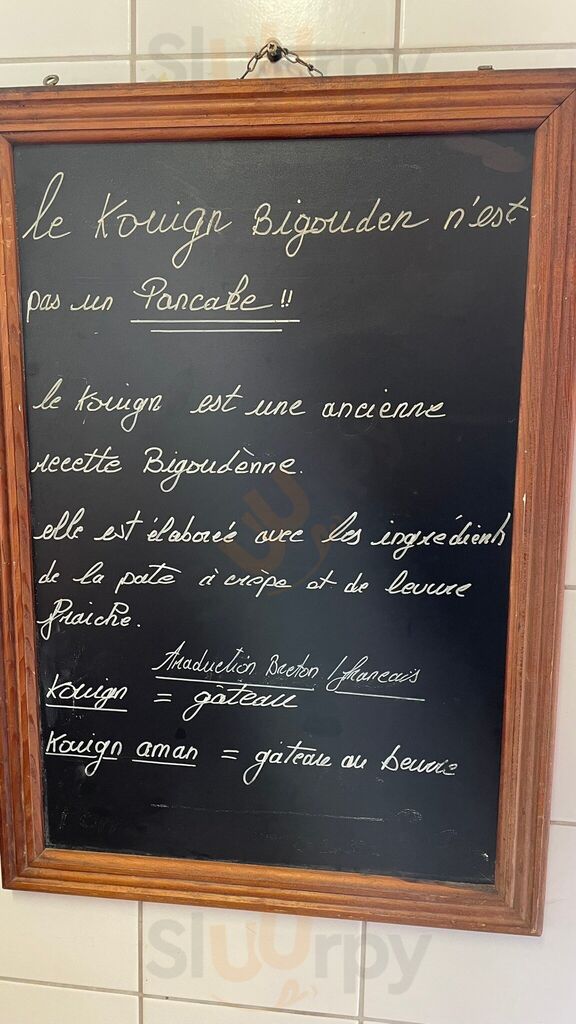 Sluurpy
le Kouign Bigouden n'est
pas un Pancake !!
le Kouign est une ancienne
recette Bigoudènne.
elle est élaboré avec les ingrédients
de la pate à crèpe et de levure
fraiche.
traduction Breton/francais
Kouign = gâteau
Kouign aman = gâteau au beurre
Sluurpy